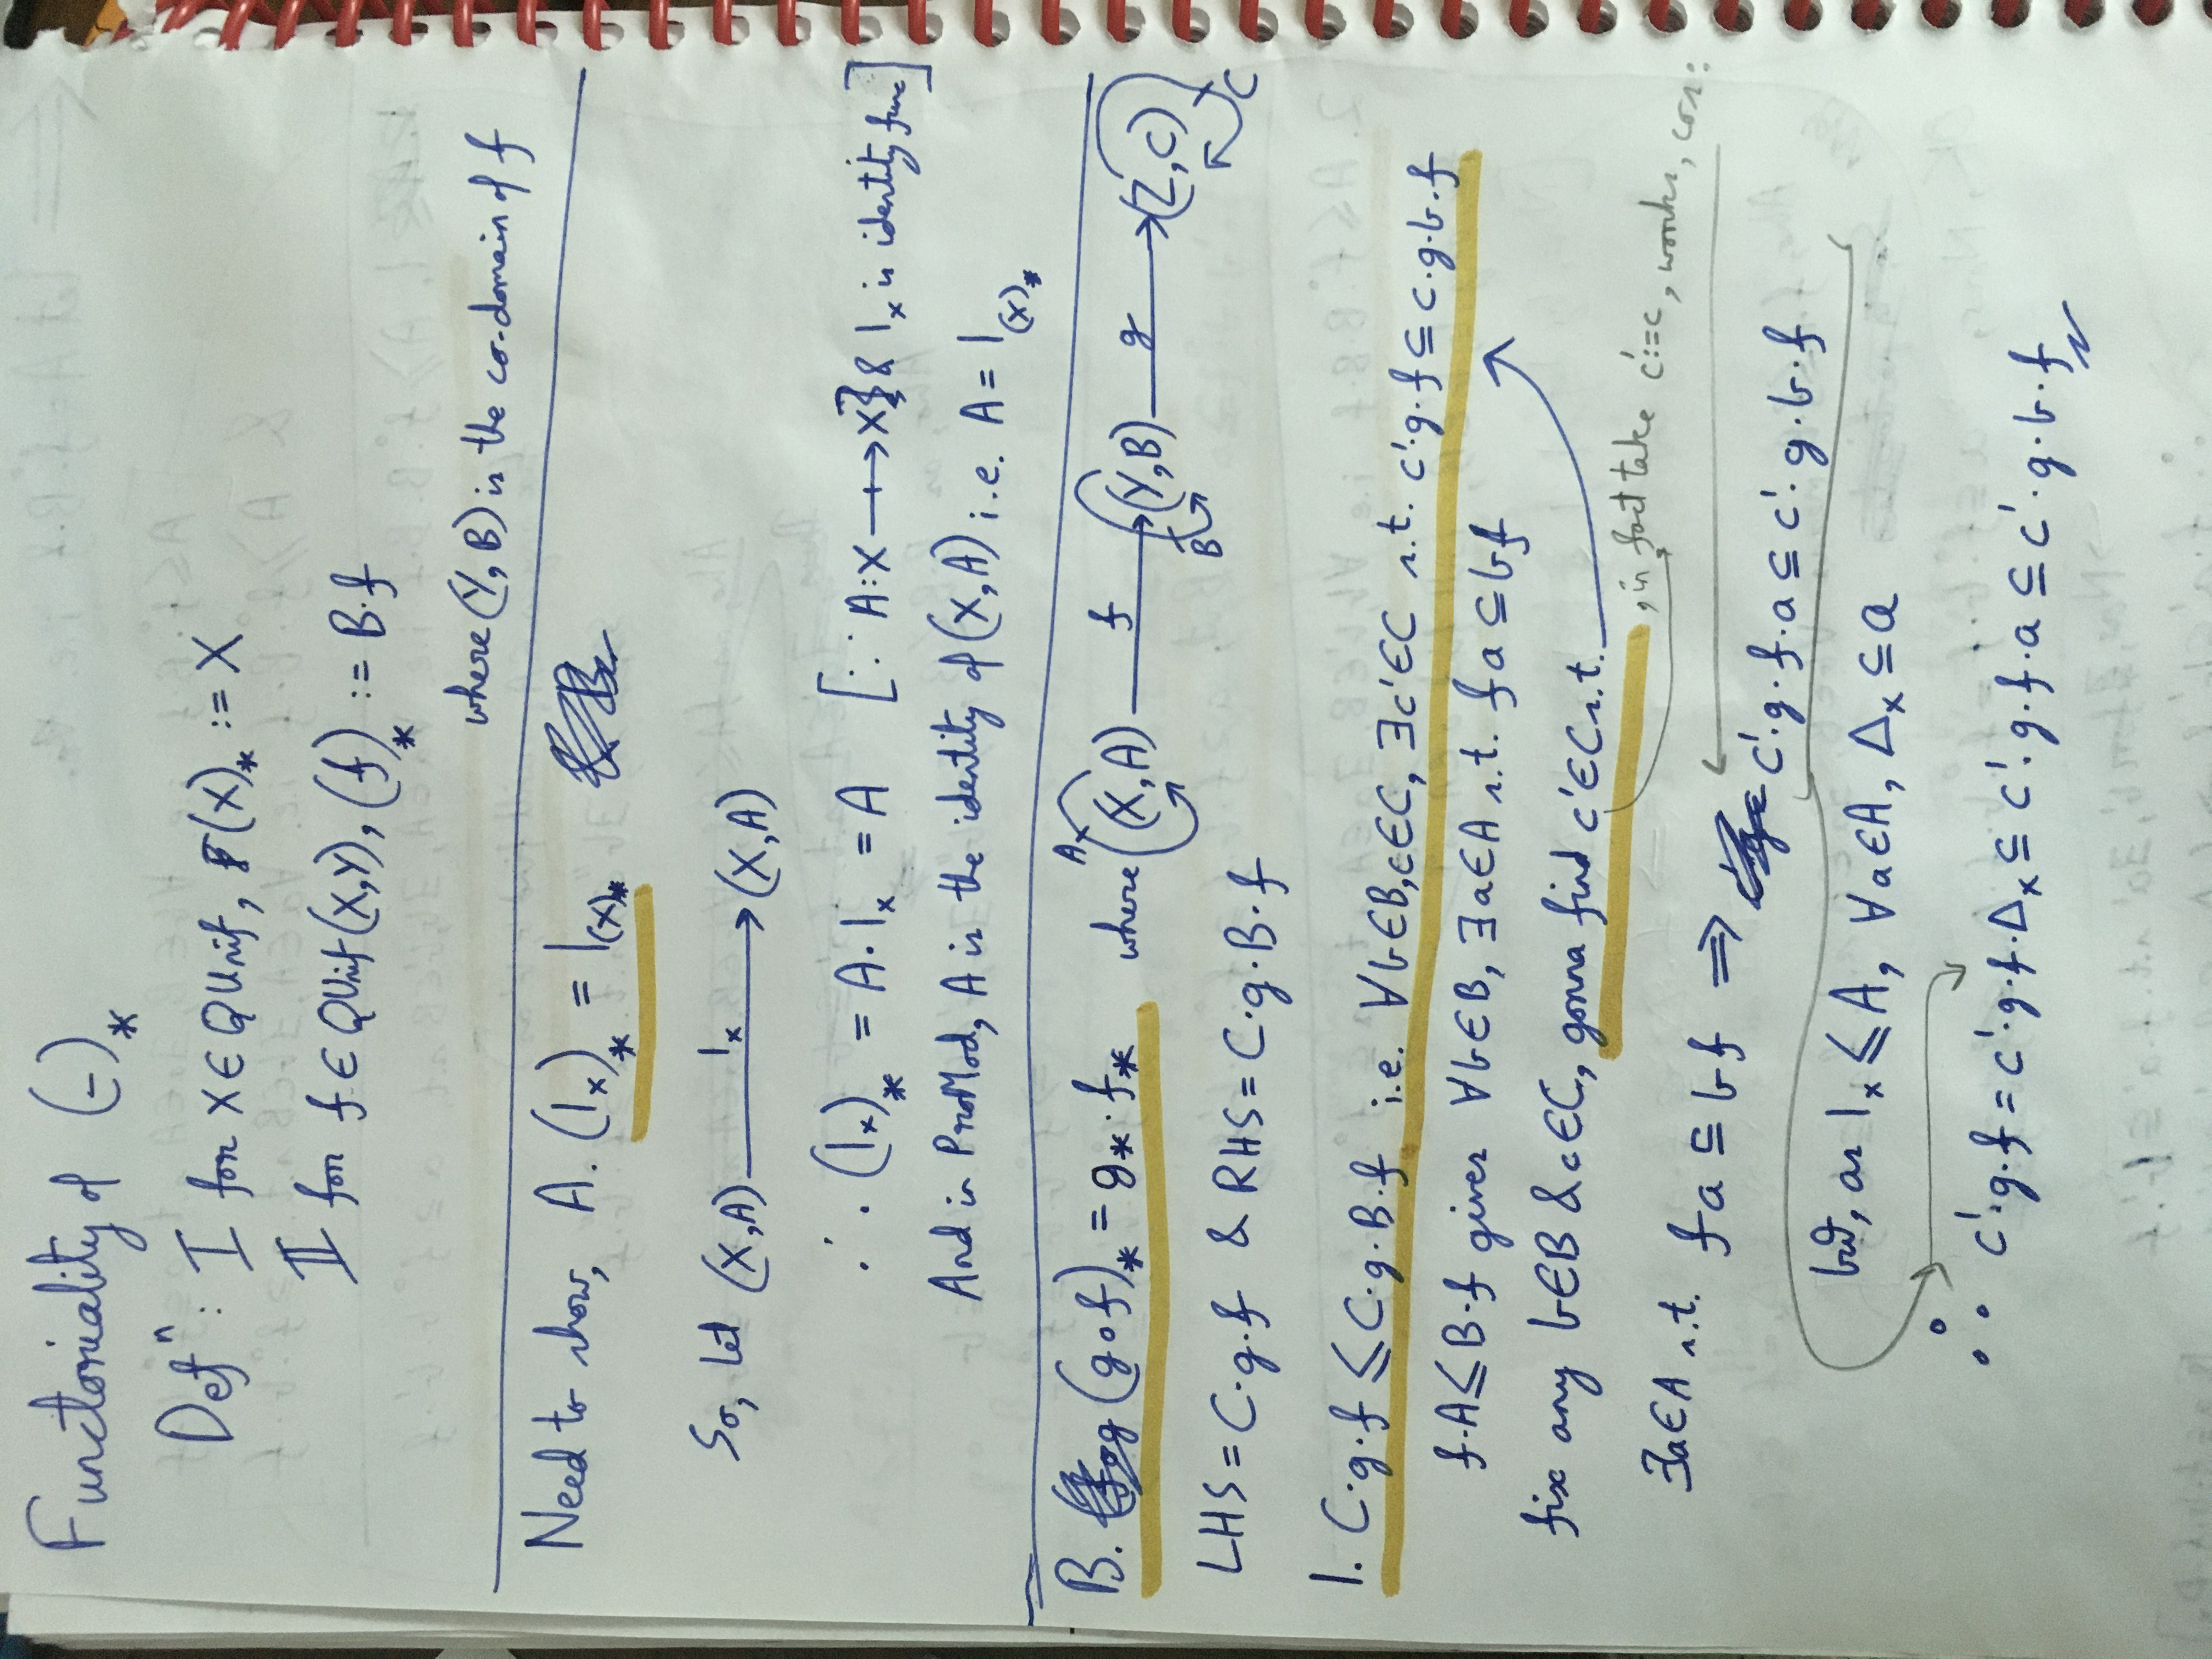 Functoriality of (-)_*
Defⁿ: I for X ∈ QUnif, (X)_* := X
II for f ∈ QUnif(X,Y), (f)_* := B·f
where (Y, B) is the co-domain of f
Need to show, A. (1_x)_* = 1_(X)_*
So, let (X,A) 1_x → (X,A)
∴ (1_x)_* = A·1_x = A [∵ A:X ⇸ X} & 1_x is identity func]
And in ProMod, A is the identity of (X,A) i.e. A = 1_(X)_*
B. (g∘f)_* = g_*·f_* where A (X,A) f → B (Y,B) g → (Z,C) C
LHS = C·g·f & RHS = C·g·B·f
1. C·g·f ≤ C·g·B·f i.e. ∀b∈B, c∈C, ∃c'∈C s.t. c'·g·f ⊆ c·g·b·f
f·A ≤ B·f gives ∀b∈B, ∃a∈A s.t. fa ⊆ bf
fix any b∈B & c∈C, gonna find c'∈C s.t.
, in fact take c':=c, works, cos:
∃a∈A s.t. fa ⊆ bf ⇒ c'·g·f·a ⊆ c'·g·b·f
but, as 1_x ≤ A, ∀a∈A, Δ_x ⊆ a
∴ c'·g·f = c'·g·f·Δ_x ⊆ c'·g·f·a ⊆ c'·g·b·f